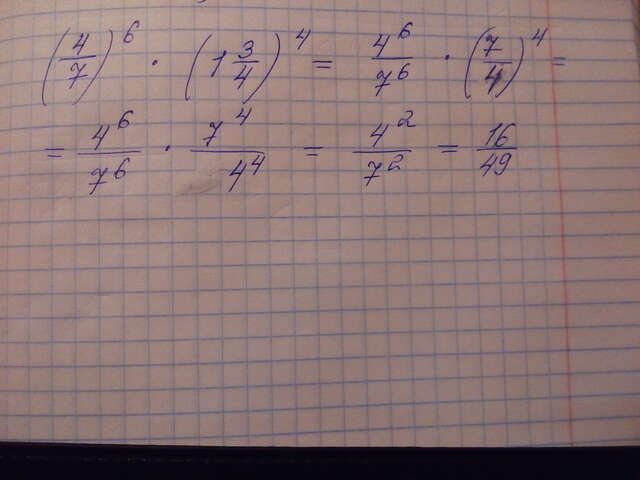 (4/7)^6 · (1 3/4)^4 = 4^6/7^6 · (7/4)^4 =
= 4^6/7^6 · 7^4/4^4 = 4^2/7^2 = 16/49